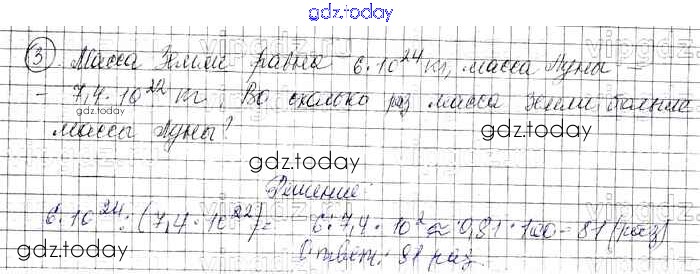 gdz.today
③ Масса Земли равна 6·10²⁴ кг, масса Луны –
– 7,4·10²² кг. Во сколько раз масса Земли больше
массы Луны?
gdz.today
gdz.today
gdz.today
Решение:
6·10²⁴:(7,4·10²²)= 6:7,4·10² ≈ 0,81·100=81 (раз)
Ответ: 81 раз.
gdz.today
gdz.today